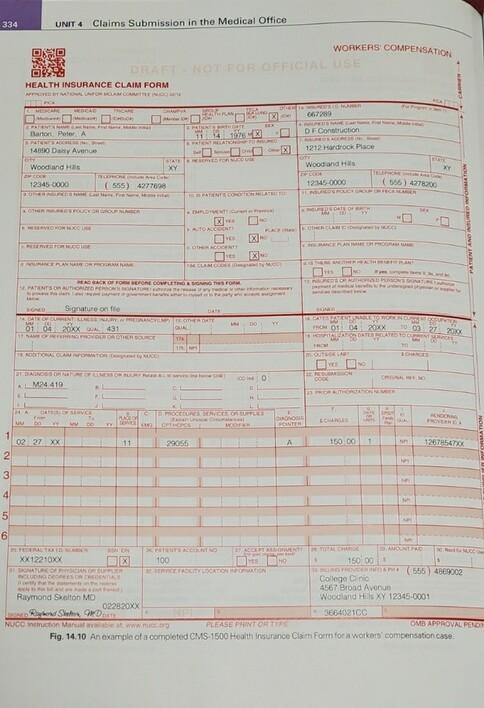 334 UNIT 4 Claims Submission in the Medical Office
WORKERS' COMPENSATION
DRAFT - NOT FOR OFFICIAL USE
HEALTH INSURANCE CLAIM FORM
APPROVED BY NATIONAL UNIFORM CLAIM COMMITTEE (NUCC) 02/12
PICA
1. MEDICARE MEDICAID TRICARE CHAMPVA GROUP HEALTH PLAN FECA BLK LUNG OTHER
1a. INSURED'S I.D. NUMBER
667289
2. PATIENT'S NAME (Last Name, First Name, Middle Initial)
Barton, Peter, A
3. PATIENT'S BIRTH DATE SEX
11 14 1976 M X F
4. INSURED'S NAME (Last Name, First Name, Middle Initial)
D F Construction
5. PATIENT'S ADDRESS (No., Street)
14890 Daisy Avenue
6. PATIENT RELATIONSHIP TO INSURED
Self Spouse Child Other X
7. INSURED'S ADDRESS (No., Street)
1212 Hardrock Place
CITY STATE
Woodland Hills XY
8. RESERVED FOR NUCC USE
CITY STATE
Woodland Hills XY
ZIP CODE TELEPHONE (Include Area Code)
12345-0000 ( 555 ) 4277698
ZIP CODE TELEPHONE (Include Area Code)
12345-0000 ( 555 ) 4278200
9. OTHER INSURED'S NAME (Last Name, First Name, Middle Initial)
10. IS PATIENT'S CONDITION RELATED TO:
11. INSURED'S POLICY GROUP OR FECA NUMBER
a. OTHER INSURED'S POLICY OR GROUP NUMBER
a. EMPLOYMENT? (Current or Previous)
X YES NO
a. INSURED'S DATE OF BIRTH SEX
MM DD YY M F
b. RESERVED FOR NUCC USE
b. AUTO ACCIDENT? PLACE (State)
YES X NO
b. OTHER CLAIM ID (Designated by NUCC)
c. RESERVED FOR NUCC USE
c. OTHER ACCIDENT?
YES X NO
c. INSURANCE PLAN NAME OR PROGRAM NAME
d. INSURANCE PLAN NAME OR PROGRAM NAME
10d. CLAIM CODES (Designated by NUCC)
d. IS THERE ANOTHER HEALTH BENEFIT PLAN?
YES NO If yes, complete items 9, 9a, and 9d.
READ BACK OF FORM BEFORE COMPLETING & SIGNING THIS FORM.
SIGNED Signature on file DATE
SIGNED
14. DATE OF CURRENT ILLNESS, INJURY, or PREGNANCY (LMP)
01 04 20XX QUAL. 431
15. OTHER DATE
QUAL. MM DD YY
16. DATES PATIENT UNABLE TO WORK IN CURRENT OCCUPATION
FROM 01 04 20XX TO 03 27 20XX
17. NAME OF REFERRING PROVIDER OR OTHER SOURCE
17a.
17b. NPI
18. HOSPITALIZATION DATES RELATED TO CURRENT SERVICES
FROM TO
19. ADDITIONAL CLAIM INFORMATION (Designated by NUCC)
20. OUTSIDE LAB? $ CHARGES
YES NO
21. DIAGNOSIS OR NATURE OF ILLNESS OR INJURY Relate A-L to service line below (24E) ICD Ind. 0
A. M24.419
22. RESUBMISSION CODE ORIGINAL REF. NO.
23. PRIOR AUTHORIZATION NUMBER
24. A. DATE(S) OF SERVICE From To
B. PLACE OF SERVICE
C. EMG
D. PROCEDURES, SERVICES, OR SUPPLIES
(Explain Unusual Circumstances)
CPT/HCPCS MODIFIER
E. DIAGNOSIS POINTER
F. $ CHARGES
RENDERING PROVIDER ID. #
1 02 27 XX 11 29055 A 150 00 1 NPI 12678547XX
2 NPI
3 NPI
4 NPI
5 NPI
6 NPI
25. FEDERAL TAX I.D. NUMBER SSN EIN
XX12210XX X
26. PATIENT'S ACCOUNT NO.
100
27. ACCEPT ASSIGNMENT?
YES NO
28. TOTAL CHARGE
$ 150 00
29. AMOUNT PAID
$
30. Rsvd for NUCC Use
31. SIGNATURE OF PHYSICIAN OR SUPPLIER
INCLUDING DEGREES OR CREDENTIALS
(I certify that the statements on the reverse
apply to this bill and are made a part thereof.)
Raymond Skelton MD
022820XX
SIGNED Raymond Skelton, MD DATE
32. SERVICE FACILITY LOCATION INFORMATION
a. NPI
33. BILLING PROVIDER INFO & PH # ( 555 ) 4869002
College Clinic
4567 Broad Avenue
Woodland Hills XY 12345-0001
a. 3664021CC
NUCC Instruction Manual available at: www.nucc.org PLEASE PRINT OR TYPE OMB APPROVAL PEND
Fig. 14.10 An example of a completed CMS-1500 Health Insurance Claim Form for a workers' compensation case.
CARRIER
PATIENT AND INSURED INFORMATION